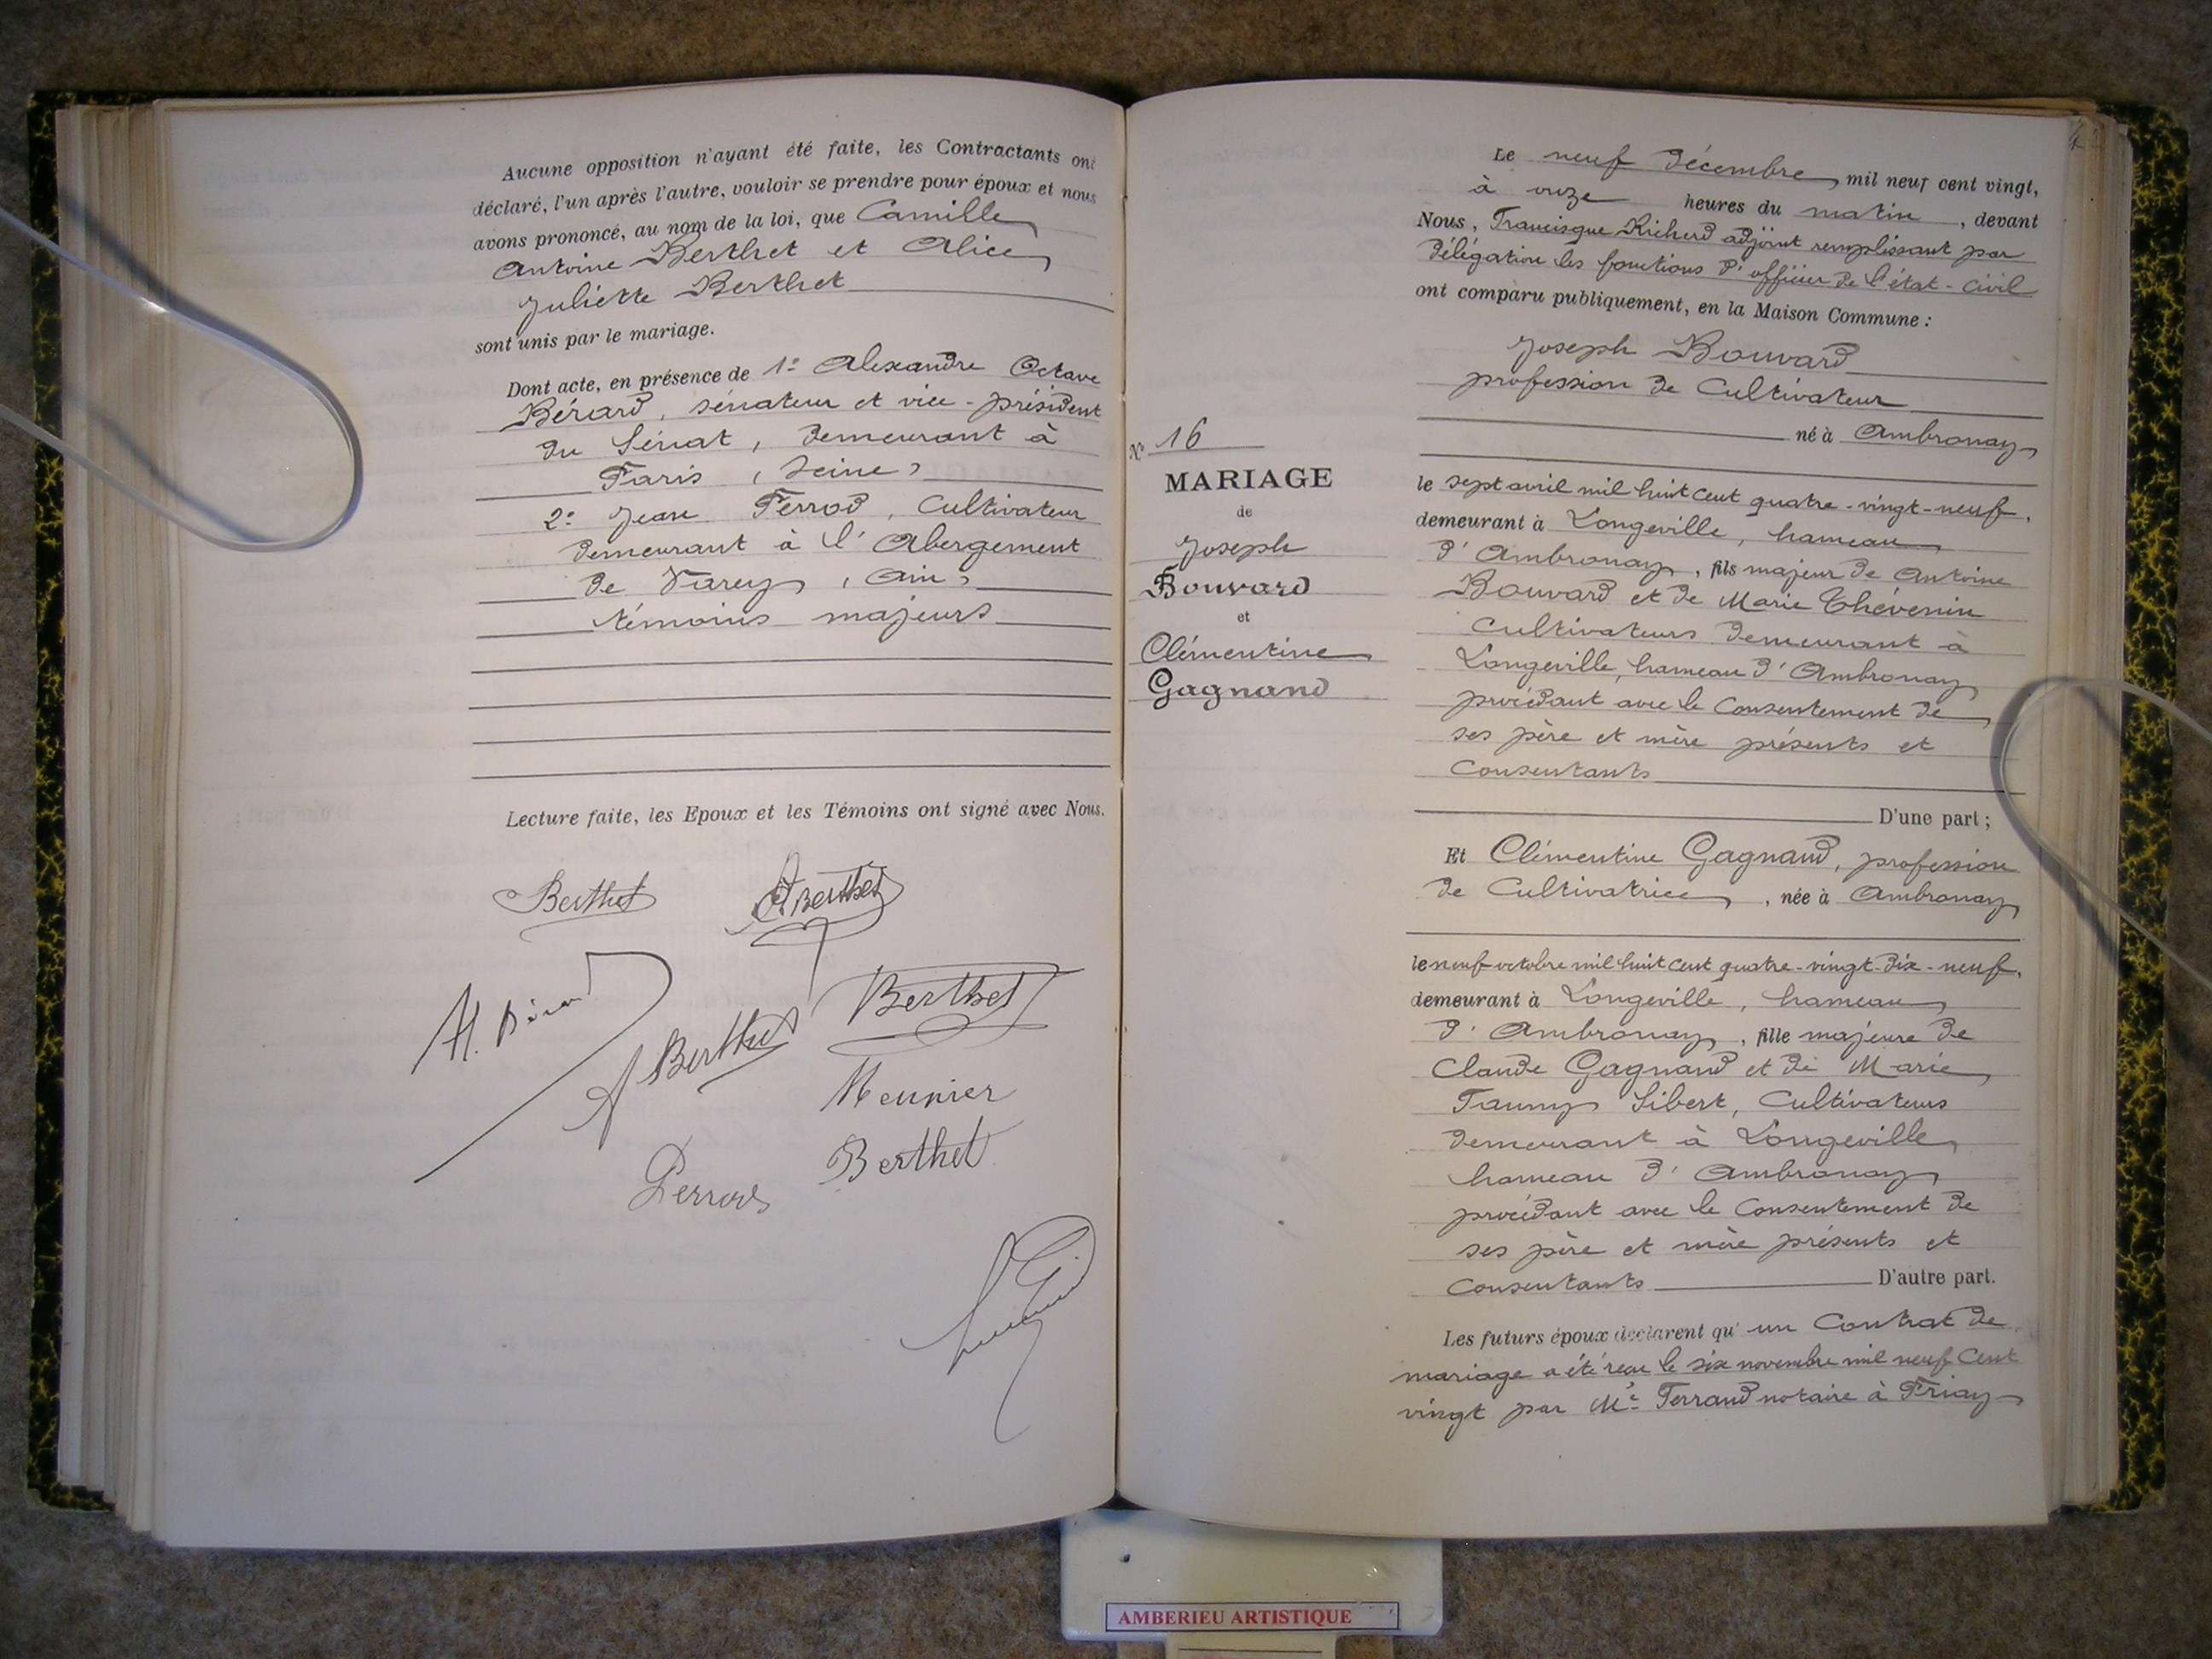 Aucune opposition n'ayant été faite, les Contractants ont
déclaré, l'un après l'autre, vouloir se prendre pour époux et nous
avons prononcé, au nom de la loi, que Camille
Antoine Berthet et Alice
Juliette Berthet
sont unis par le mariage.
Dont acte, en présence de 1º Alexandre Octave
Bérard, sénateur et vice-président
du Sénat, demeurant à
Paris (Seine)
2º Jean Perrod, Cultivateur
demeurant à l'Abergement
de Varey (Ain)
témoins majeurs
Lecture faite, les Epoux et les Témoins ont signé avec Nous.
Berthet
A Berthet
Al. Bérard
A Berthet
Berthet
Meunier
Berthet
Perrod
Nº 16
MARIAGE
de
Joseph
Bouvard
et
Clémentine
Gagnand
Le neuf Décembre, mil neuf cent vingt,
à onze heures du matin, devant
Nous, Francisque Richerd adjoint remplissant par
délégation les fonctions d'officier de l'état-civil
ont comparu publiquement, en la Maison Commune :
Joseph Bouvard
profession de Cultivateur
né à Ambronay
le sept avril mil huit cent quatre-vingt-neuf,
demeurant à Longeville, hameau
d'Ambronay, fils majeur de Antoine
Bouvard et de Marie Thévenin
Cultivateurs demeurant à
Longeville, hameau d'Ambronay
procédant avec le Consentement de
ses père et mère présents et
Consentants
D'une part ;
Et Clémentine Gagnand, profession
de Cultivatrice, née à Ambronay
le neuf octobre mil huit cent quatre-vingt-dix-neuf,
demeurant à Longeville, hameau
d'Ambronay, fille majeure de
Claude Gagnand et de Marie
Fanny Sibert, Cultivateurs
demeurant à Longeville,
hameau d'Ambronay
procédant avec le Consentement de
ses père et mère présents et
Consentants D'autre part.
Les futurs époux déclarent qu'un Contrat de
mariage a été reçu le six novembre mil neuf Cent
vingt par Mº Ferrand notaire à Priay
AMBERIEU ARTISTIQUE